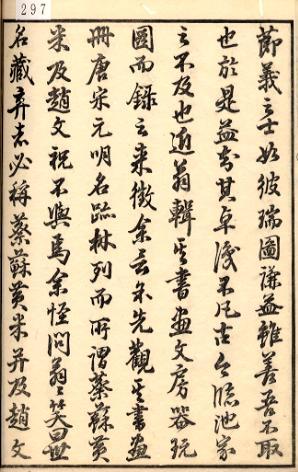 297
節義之士如彼瑞圖謙益雖善吾不取
也於是益知其卓識不凡古今臨池家
之不及也逎翁輯其書畫文房器玩
圖而錄之來徵余言余先觀其書畫
冊唐宋元明名蹟林列而所謂蔡蘇黃
米及趙文祝不與焉余怪問翁翁笑曰世
名藏弆者必稱蔡蘇黃米并及趙文